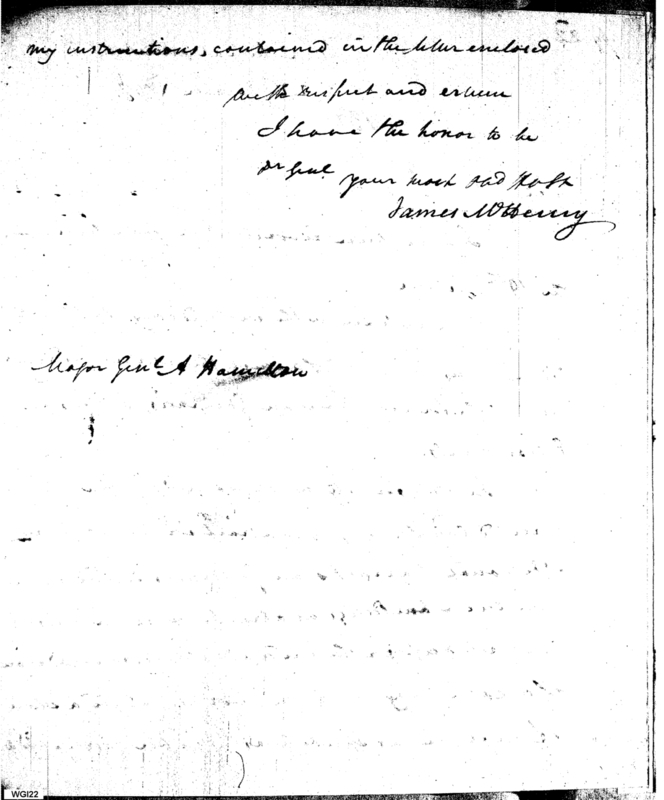 my instructions, contained in the letter enclosed
with respect and esteem
I have the honor to be
Dr Genl
your most obd Hust
James McHenry
Major Genl A Hamilton
WGI22